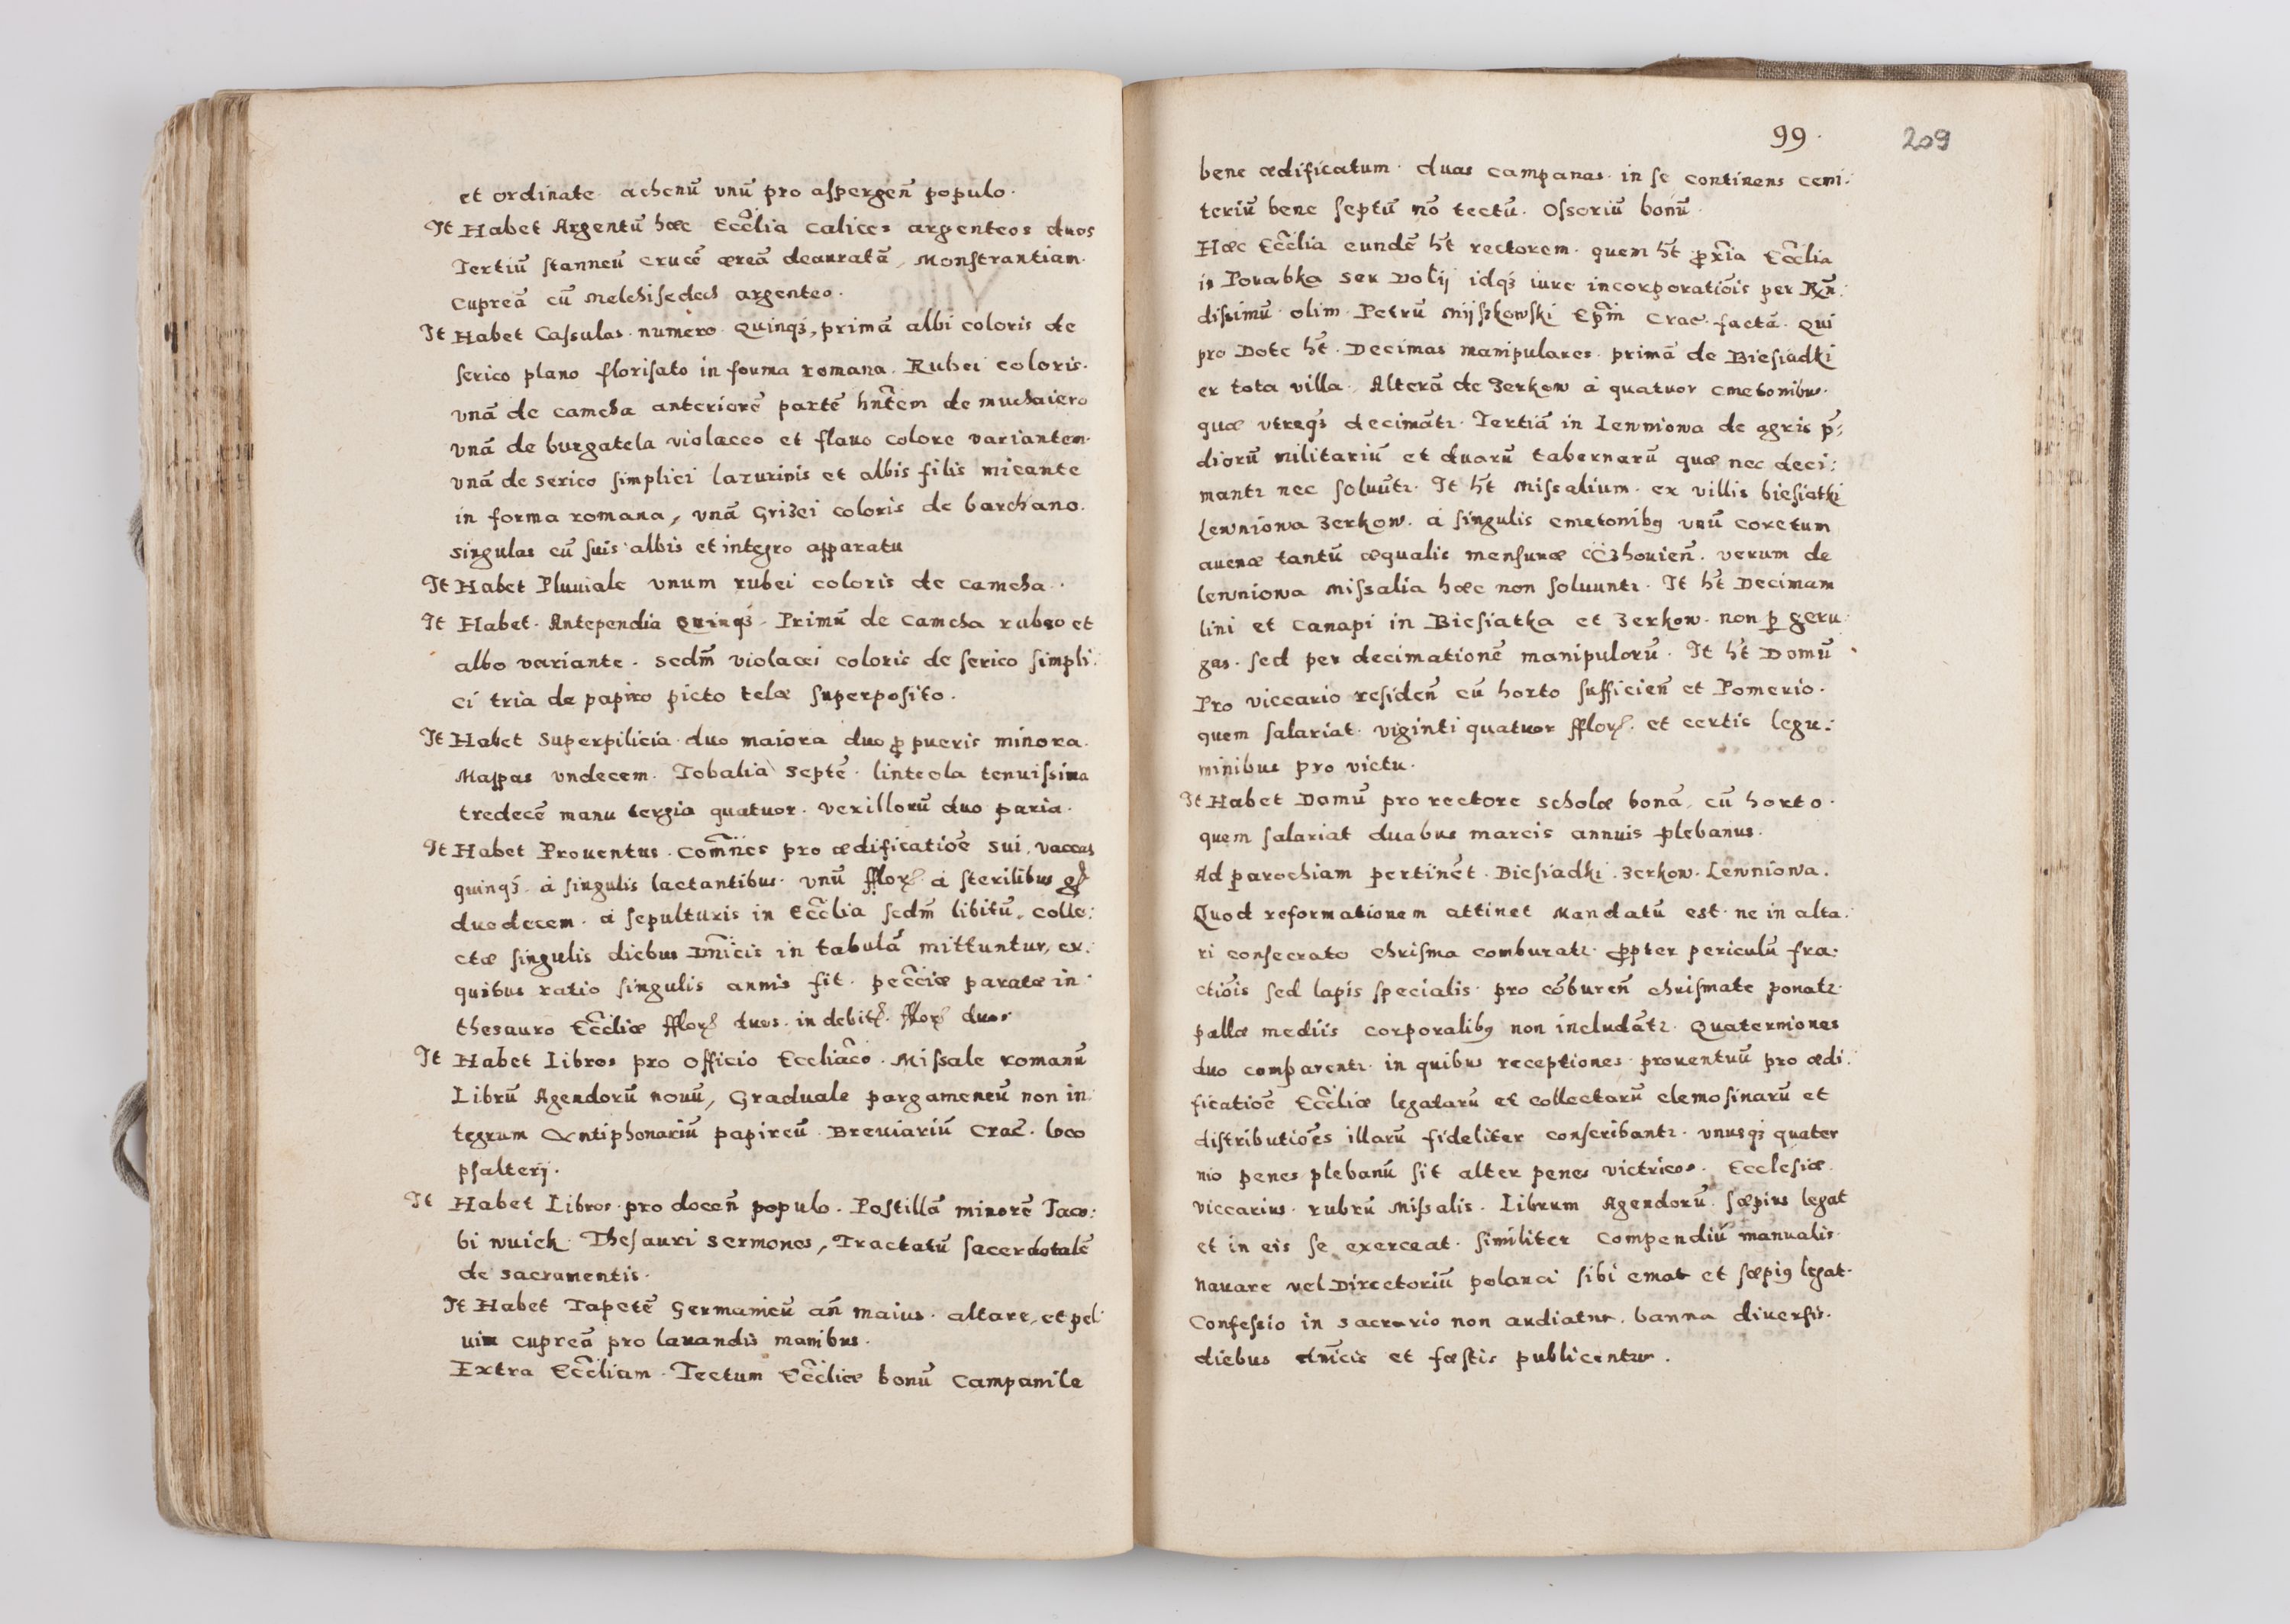 et ordinate. achenū vnū pro aspergeñ populo.
It Habet Argentū hæc Eccl̃ia calices argenteos duos
Tertiū stanneū crucē æreā deauratā, Monstrantiam
cupreā cū Melchisedech argenteo.
It Habet Cassulas numero Quinqꝫ, primā albi coloris de
serico plano florisato in forma romana. Rubei coloris.
vnā de camcha anteriorē partē hñtem de muchaiero
vnā de burgatela violaceo et flauo colore variantem.
vnā de serico simplici lazurinis et albis filis micante
in forma romana, vnā Grizei coloris de barchano.
singulas cū suis albis et integro apparatu
It Habet Pluuiale vnum rubei coloris de camcha.
It Habet. Antependia Quinqꝫ. Primū de Camcha rubeo et
albo variante. Secdm̃ violacei coloris de serico simpli:
ci tria de papiro picto telæ superposito.
It Habet Superpilicia duo maiora duo ꝓ pueris minora.
Mappas vndecem. Tobalia septē. linteola tenuissima
tredecē manu tergia quatuor. vexillorū duo paria.
It Habet Prouentus. com̃nes pro ædificatiōe sui, vaccas
quinqꝫ. á singulis lactantibus. vnū fflor. á sterilibus gr̃
duodecem. á sepulturis in Eccl̃ia secdm̃ libitū, colle:
ctæ singulis diebus Dñicis in tabulā mittuntur, ex:
quibus ratio singulis annis fit. pecc̃iæ paratæ in
thesauro Eccl̃iæ fflor duos. in debit. fflor duos
It Habet Libros pro officio Eccliãco. Missale romanū
Librū Agendorū nouū, Graduale pargameneū non in:
tegrum Antiphonariū papireū. Breuiariū Crac̃. loco
psalterij.
It Habet Libros pro doceñ populo. Postillā minorē Jaco:
bi wuick. Thesauri sermones, Tractatū sacerdotalē
de sacramentis.
It Habet Tapetē Germanicū añ maius altare, et pel:
uim cupreā pro lauandis manibus.
Extra Eccl̃iam. Tectum Eccl̃iæ bonū Campanile
99.
209
bene ædificatum. duas campanas in se continens cemi:
teriū bene septū nō tectū. Ossoriū bonū.
Hæc Eccl̃ia eundē ht̃ rectorem quem ht̃ ꝓxĩa Eccl̃ia
in Porabka ser Dotij idqꝫ iure incorporatiōis per Rñ:
dissimū olim Petrū Mijszkowski Ep̃m Crac. factā. Qui
pro Dote ht̃. Decimas manipulares. primā de Biesiadki
ex tota villa. Alterā de Zerkow á quatuor cmetonibus.
quæ vtreqꝫ decimātr. Tertiā in Lewniowa de agris p̃:
diorū militariū et duarū tabernarū quæ nec deci:
mantr nec soluūtr. It ht̃ Missalium ex villis biesiatki
Lewniowa Zerkow. á singulis cmetonibꝰ vnū coretum
auenæ tantū æqualis mensuræ CCzhouieñ. verum de
lewniowa Missalia hæc non soluuntr. It ht̃ Decimam
lini et Canapi in Biesiatka et Zerkow non ꝑ geru:
gas. sed per decimationē manipulorū. It ht̃ Domū
Pro viccario resideñ cū horto sufficieñ et Pomerio.
quem salariat viginti quatuor fflor. et certis legu:
minibus pro victu.
It Habet Domū pro rectore scholæ bonā, cū horto.
quem salariat duabus marcis annuis plebanus.
Ad parochiam pertinēt. Biesiadki. Zerkow. Lewniowa.
Quod reformationem attinet Mandatū est ne in alta:
ri consecrato chrisma comburatr. ꝓpter periculū fra:
ctiōis sed lapis specialis pro cōbureñ chrismate ponatr.
pallæ mediis corporalibꝰ non includātr. Quaterniones
duo comparentr. in quibus receptiones prouentuū pro ædi:
ficatiōe Eccl̃iæ legatarū et collectarū elemosinarū et
distributiōes illarū fideliter conscribantr. vnusqꝫ quater
nio penes plebanū sit alter penes victricos. Ecclesiæ
viccarius rubrū Missalis. Librum Agendorū sæpius legat
et in eis se exerceat. similiter Compendiū manualis
nauare vel Directoriū polanci sibi emat et sæpiꝰ legat.
Confessio in sacrario non audiatur. banna diuersis.
diebus dñicis et fæstis publicentur.